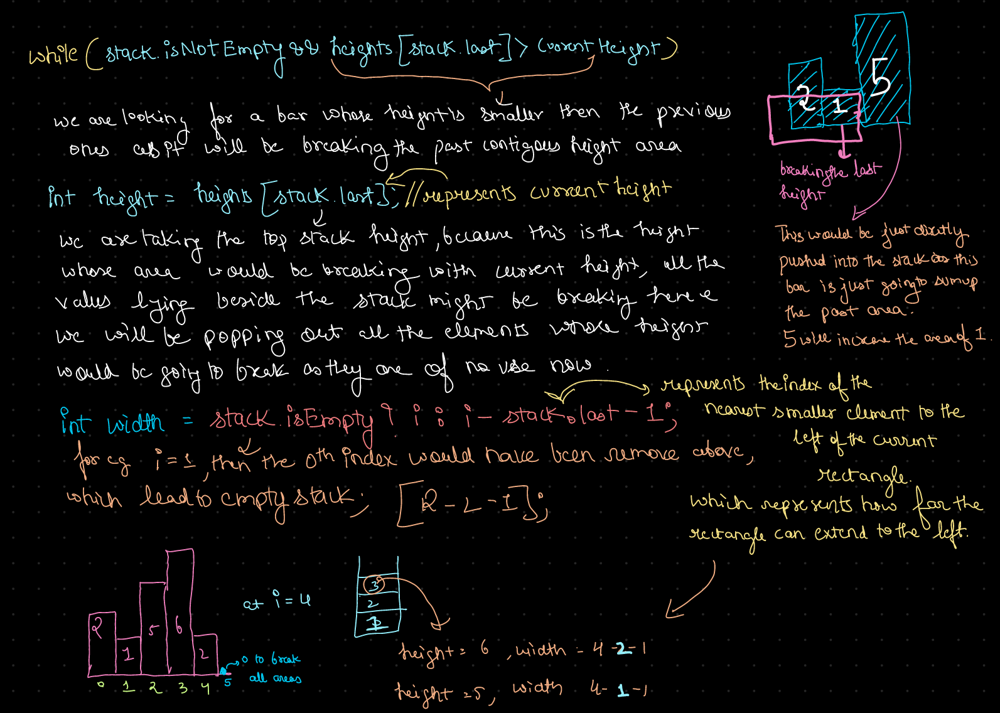 while (stack.isNotEmpty && heights[stack.last] > currentHeight)
we are looking for a bar whose height is smaller then the previous
ones as it will be breaking the past contigous height area
int height = heights[stack.last]; //represents current height
we are taking the top stack height, because this is the height
whose area would be breaking with current height, all the
values lying beside the stack might be breaking here &
we will be popping out all the elements whose height
would be going to break as they are of no use now.
int width = stack.isEmpty ? i : i - stack.last - 1;
for eg i=1, then the 0th index would have been remove above,
which lead to empty stack; [R-L-1];
2
1
5
breaking the last
height
This would be just directly
pushed into the stack as this
bar is just going to sumup
the past area.
5 will increase the area of 1
represents the index of the
nearest smaller element to the
left of the current
rectangle.
which represents how far the
rectangle can extend to the left.
2
1
5
6
2
0 1 2 3 4 5
0 to break
all areas
at i=4
3
2
1
height = 6, width - 4-2-1
height = 5, width 4-1-1